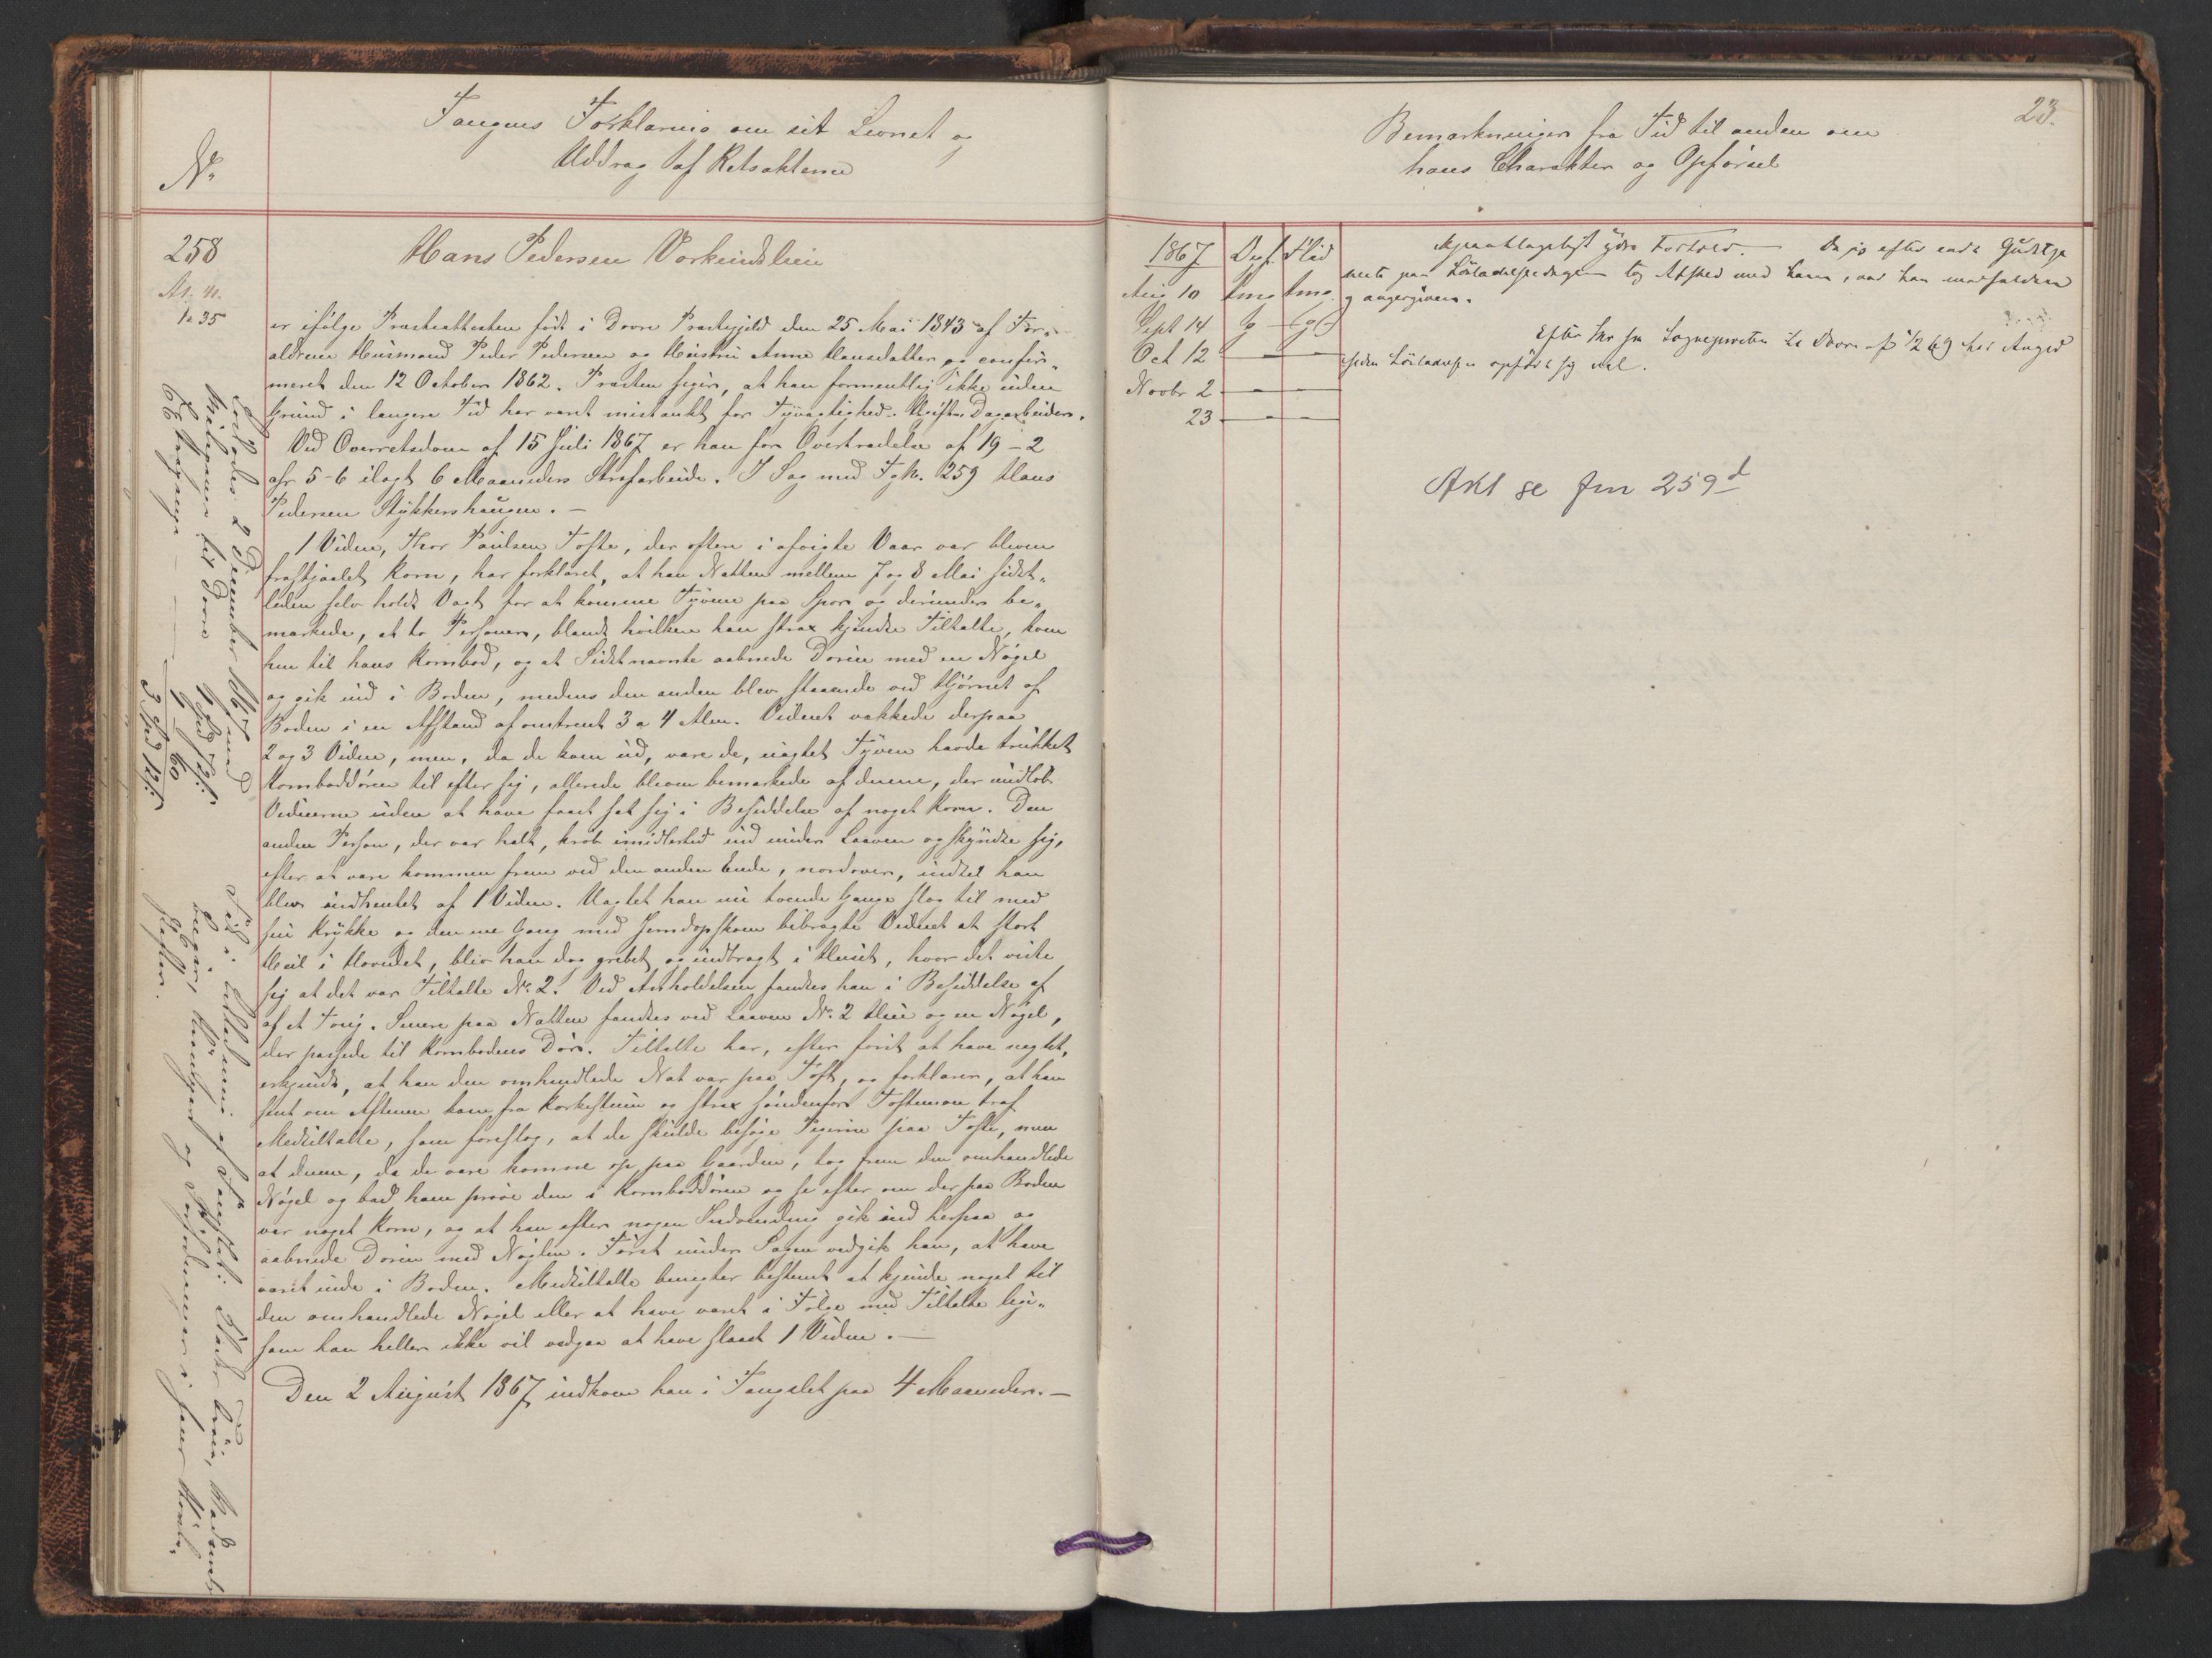 Nr.
Fangens Forklaring om sit Levnet og
Uddrag af Retsakterne
258
Hans Pedersen Vorkinslien
er ifølge Præsteattesten født i Dovre Præstegjeld den 25 Mai 1843 af For-
ældrene Husmand Peder Pedersen og Hustru Anne Hansdatter og confir-
meret den 12 October 1862. Præsten siger, at han formentlig ikke uden
Grund i længere Tid har været mistænkt for Tyvagtighed. Ugift Dagarbeider.
Ved Overretsdom af 15 Juli 1867 er han for Overtrædelse af 19-2
cfr 5-6 ilagt 6 Maaneders Strafarbeide. I Sag med Fg. Nr. 259 Hans
Pedersen Stykkershaugen. —
1 Vidne, Thor Paulsen Tofte, der oftere i afvigte Vaar var bleven
frastjaalet Korn, har forklaret, at han Natten mellem 7 og 8 Mai sidst-
leden selv holdt Vagt for at komme Tyvene paa Spor og derunder be-
mærkede, at to Personer, blandt hvilke han strax kjendte Tiltalte, kom
hen til hans Kornbod, og at Sidstnævnte aabnede Døren med en Nøgel
og gik ind i Boden, medens den anden blev staaende ved Hjørnet af
Boden i en Afstand af omtrent 3 a 4 Alen. Vidnet vækkede derpaa
2 og 3 Vidne, men, da de kom ud, vare de, uagtet Tyven havde trukket
Kornboddøren til efter sig, allerede bleven bemærkede af denne, der undløb
Vidnerne uden at have faaet sat sig i Besiddelse af noget Korn. Den
anden Person, der var halt, krøb imidlertid ind under Laaven og skyndte sig,
efter at være kommen frem ved den anden Ende, nordover, indtil han
blev indhentet af 1 Vidne. Uagtet han nu tvende Gange slog til med
sin Krykke og den ene Gang med Jerndopskoen bibragte Vidnet et stort
Hul i Hovedet, blev han dog grebet og indbragt i Huset, hvor det viste
sig at det var Tiltalte No. 2. Ved Anholdelsen fandtes han i Besiddelse af
af et Toug. Senere paa Natten fandtes ved Laaven No. 2 Hue og en Nøgel,
der passede til Kornbodens Dør. Tiltalte har, efter først at have negtet,
erkjendt, at han den omhandlede Nat var paa Toft, og forklarer, at han
sent om Aftenen kom fra Korkestuen og strax søndenfor Toftemoen traf
Medtiltalte, som foreslog, at de skulde besøge Pigerne paa Tofte, men
at denne, da de vare komne op paa Gaarden, tog frem den omhandlede
Nøgel og bad ham prøve den i Kornboddøren og se efter om der paa Boden
var noget Korn, og at han efter nogen Indvending gik ind herpaa og
aabnede Døren med Nøglen. Først under Sagen vedgik han, at have
været inde i Boden. Medtiltalte benegter bestemt at kjende noget til
den omhandlede Nøgel eller at have været i Følge med Tiltalte lige-
som han heller ikke vil vedgaa at have slaaet 1 Vidne. —
Den 2 August 1867 indkom han i Fangslet paa 4 Maaneder. —
Løslades 2 December 1867 med
23.
Bemærkninger fra Tid til anden om
hans Charakter og Opførsel
1867 Opf. Flid
Aug 10 tmg tmg.
Sept 14 g — g(-)
Oct 12 — —
Novbr 2 — —
23 — —
Upaaklageligt ydre Forhold. — Da jeg efter endt Gudstje
neste paa Løsladelsesdagen tog Afsked med ham, var han
og angergiven.
Efter Skr fra Sognepresten til Dovre af 1/2 69 har Angj
siden Løsladelsen opført sig vel.
Akt se fm 259 d